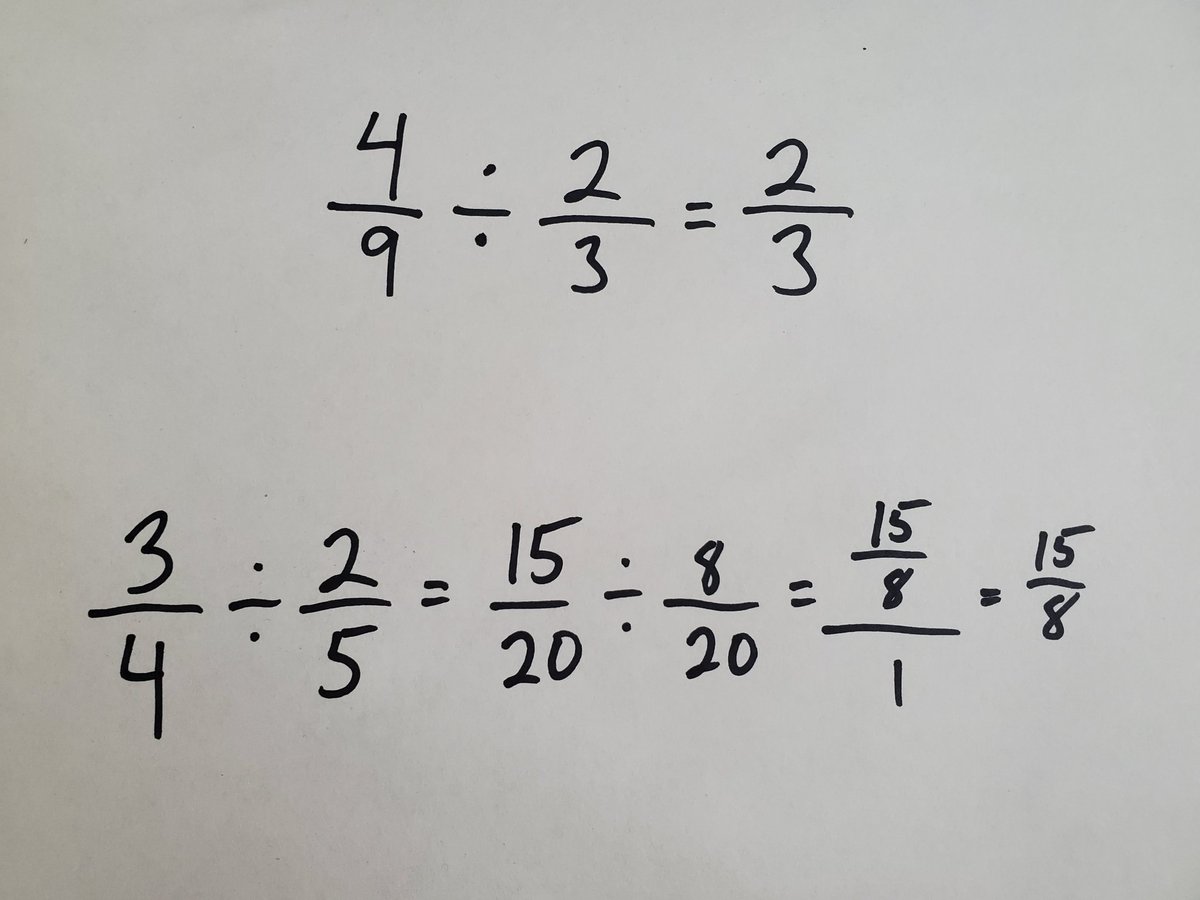 4/9 ÷ 2/3 = 2/3
3/4 ÷ 2/5 = 15/20 ÷ 8/20 = (15/8)/1 = 15/8